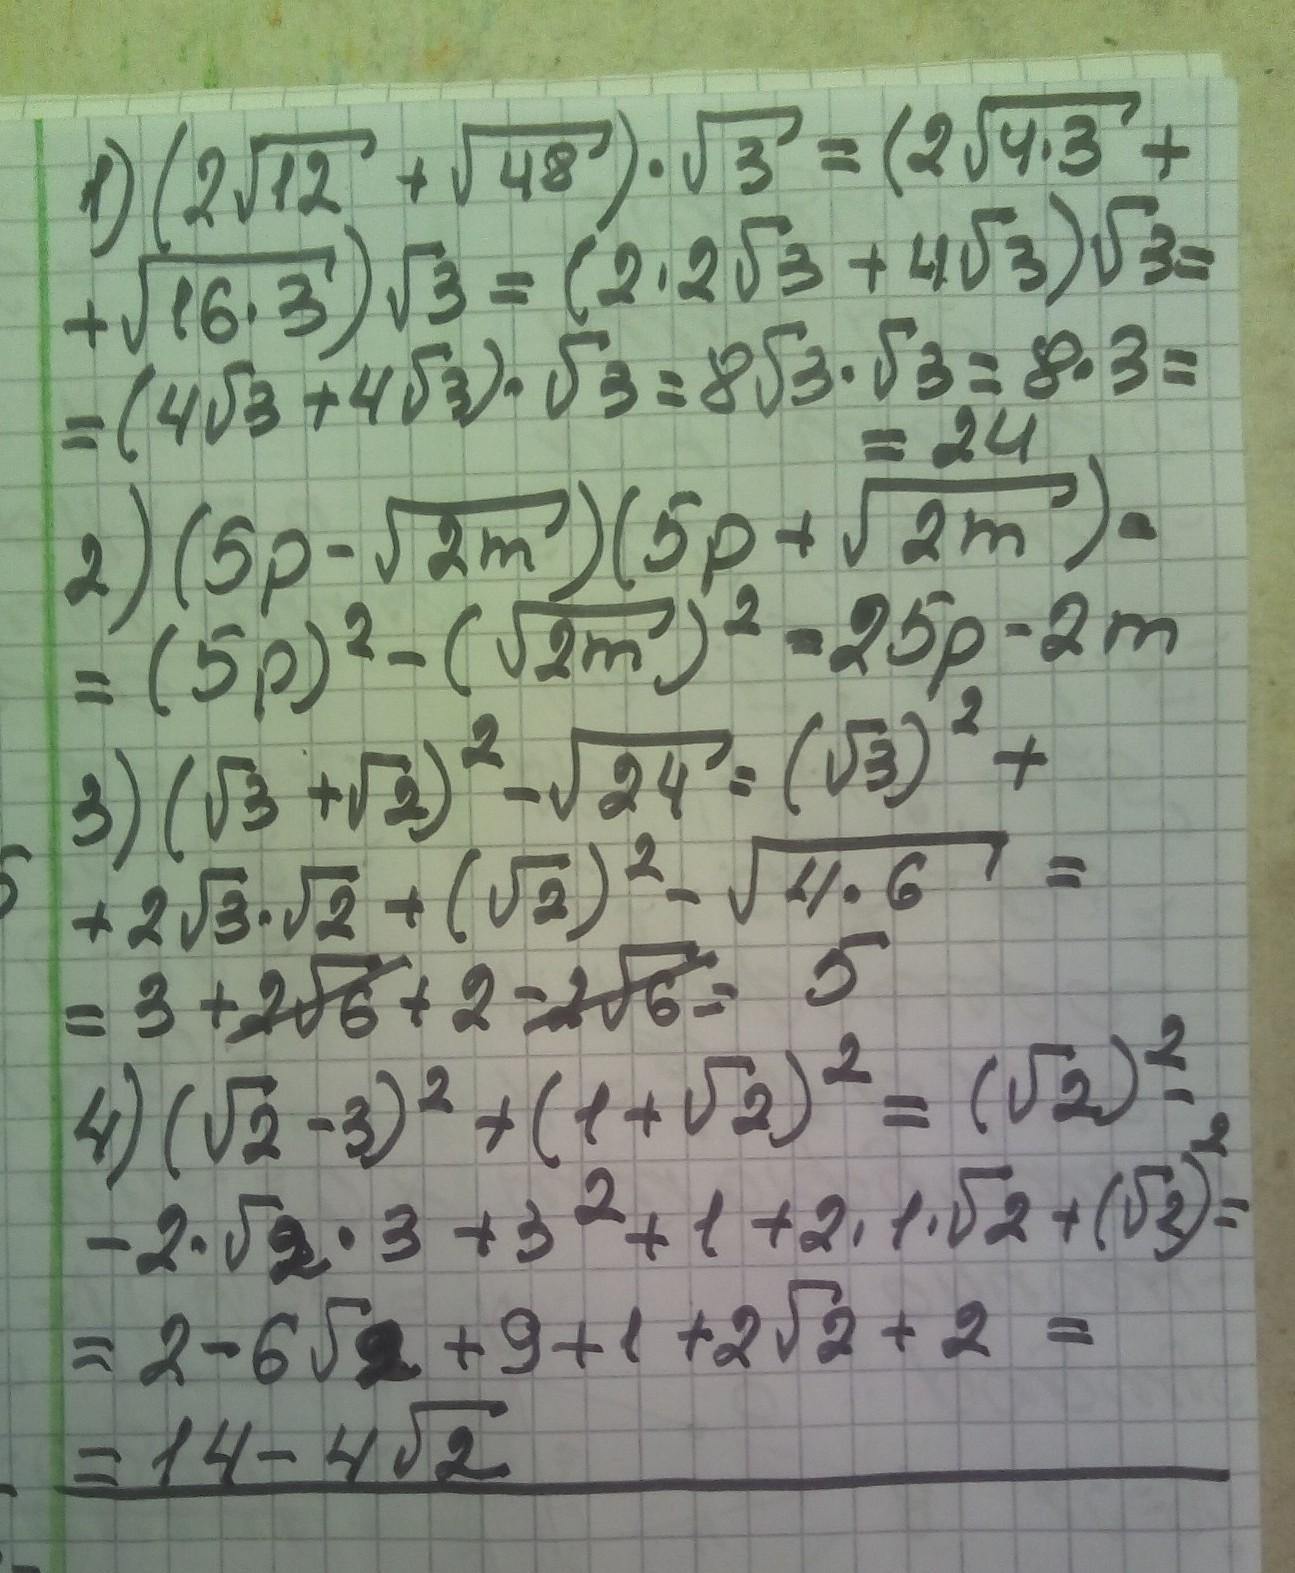 1) (2√12 + √48)·√3 = (2√4·3 +
+ √16·3)√3 = (2·2√3 + 4√3)√3 =
= (4√3 + 4√3)·√3 = 8√3·√3 = 8·3 =
= 24
2) (5p - √2m)(5p + √2m) =
= (5p)² - (√2m)² = 25p - 2m
3) (√3 + √2)² - √24 = (√3)² +
+ 2√3·√2 + (√2)² - √4·6 =
= 3 + 2√6 + 2 - 2√6 = 5
4) (√2 - 3)² + (1 + √2)² = (√2)² -
- 2·√2·3 + 3² + 1 + 2·1·√2 + (√2)² =
= 2 - 6√2 + 9 + 1 + 2√2 + 2 =
= 14 - 4√2